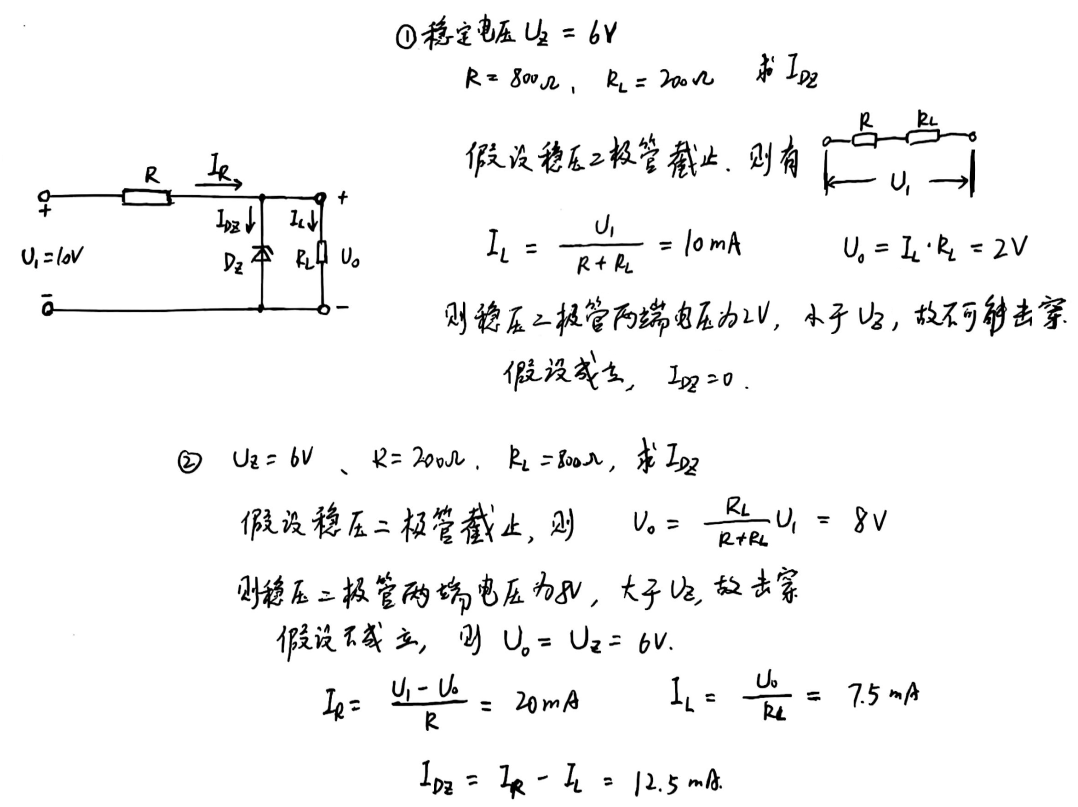 ①稳定电压 U_Z = 6V
R = 800Ω, R_L = 200Ω 求 I_DZ
假设稳压二极管截止. 则有
R R_L
U₁
I_L = U₁ / (R + R_L) = 10mA U₀ = I_L · R_L = 2V
则稳压二极管两端电压为2V, 小于 U_Z, 故不可能击穿.
假设成立, I_DZ = 0.
R I_R
+ +
I_DZ I_L
U₁ = 10V D_Z R_L U₀
− −
② U_Z = 6V、R = 200Ω. R_L = 800Ω, 求 I_DZ
假设稳压二极管截止, 则 U₀ = R_L / (R + R_L) U₁ = 8V
则稳压二极管两端电压为8V, 大于 U_Z, 故击穿
假设不成立, 则 U₀ = U_Z = 6V.
I_R = (U₁ − U₀) / R = 20mA I_L = U₀ / R_L = 7.5mA
I_DZ = I_R − I_L = 12.5mA.